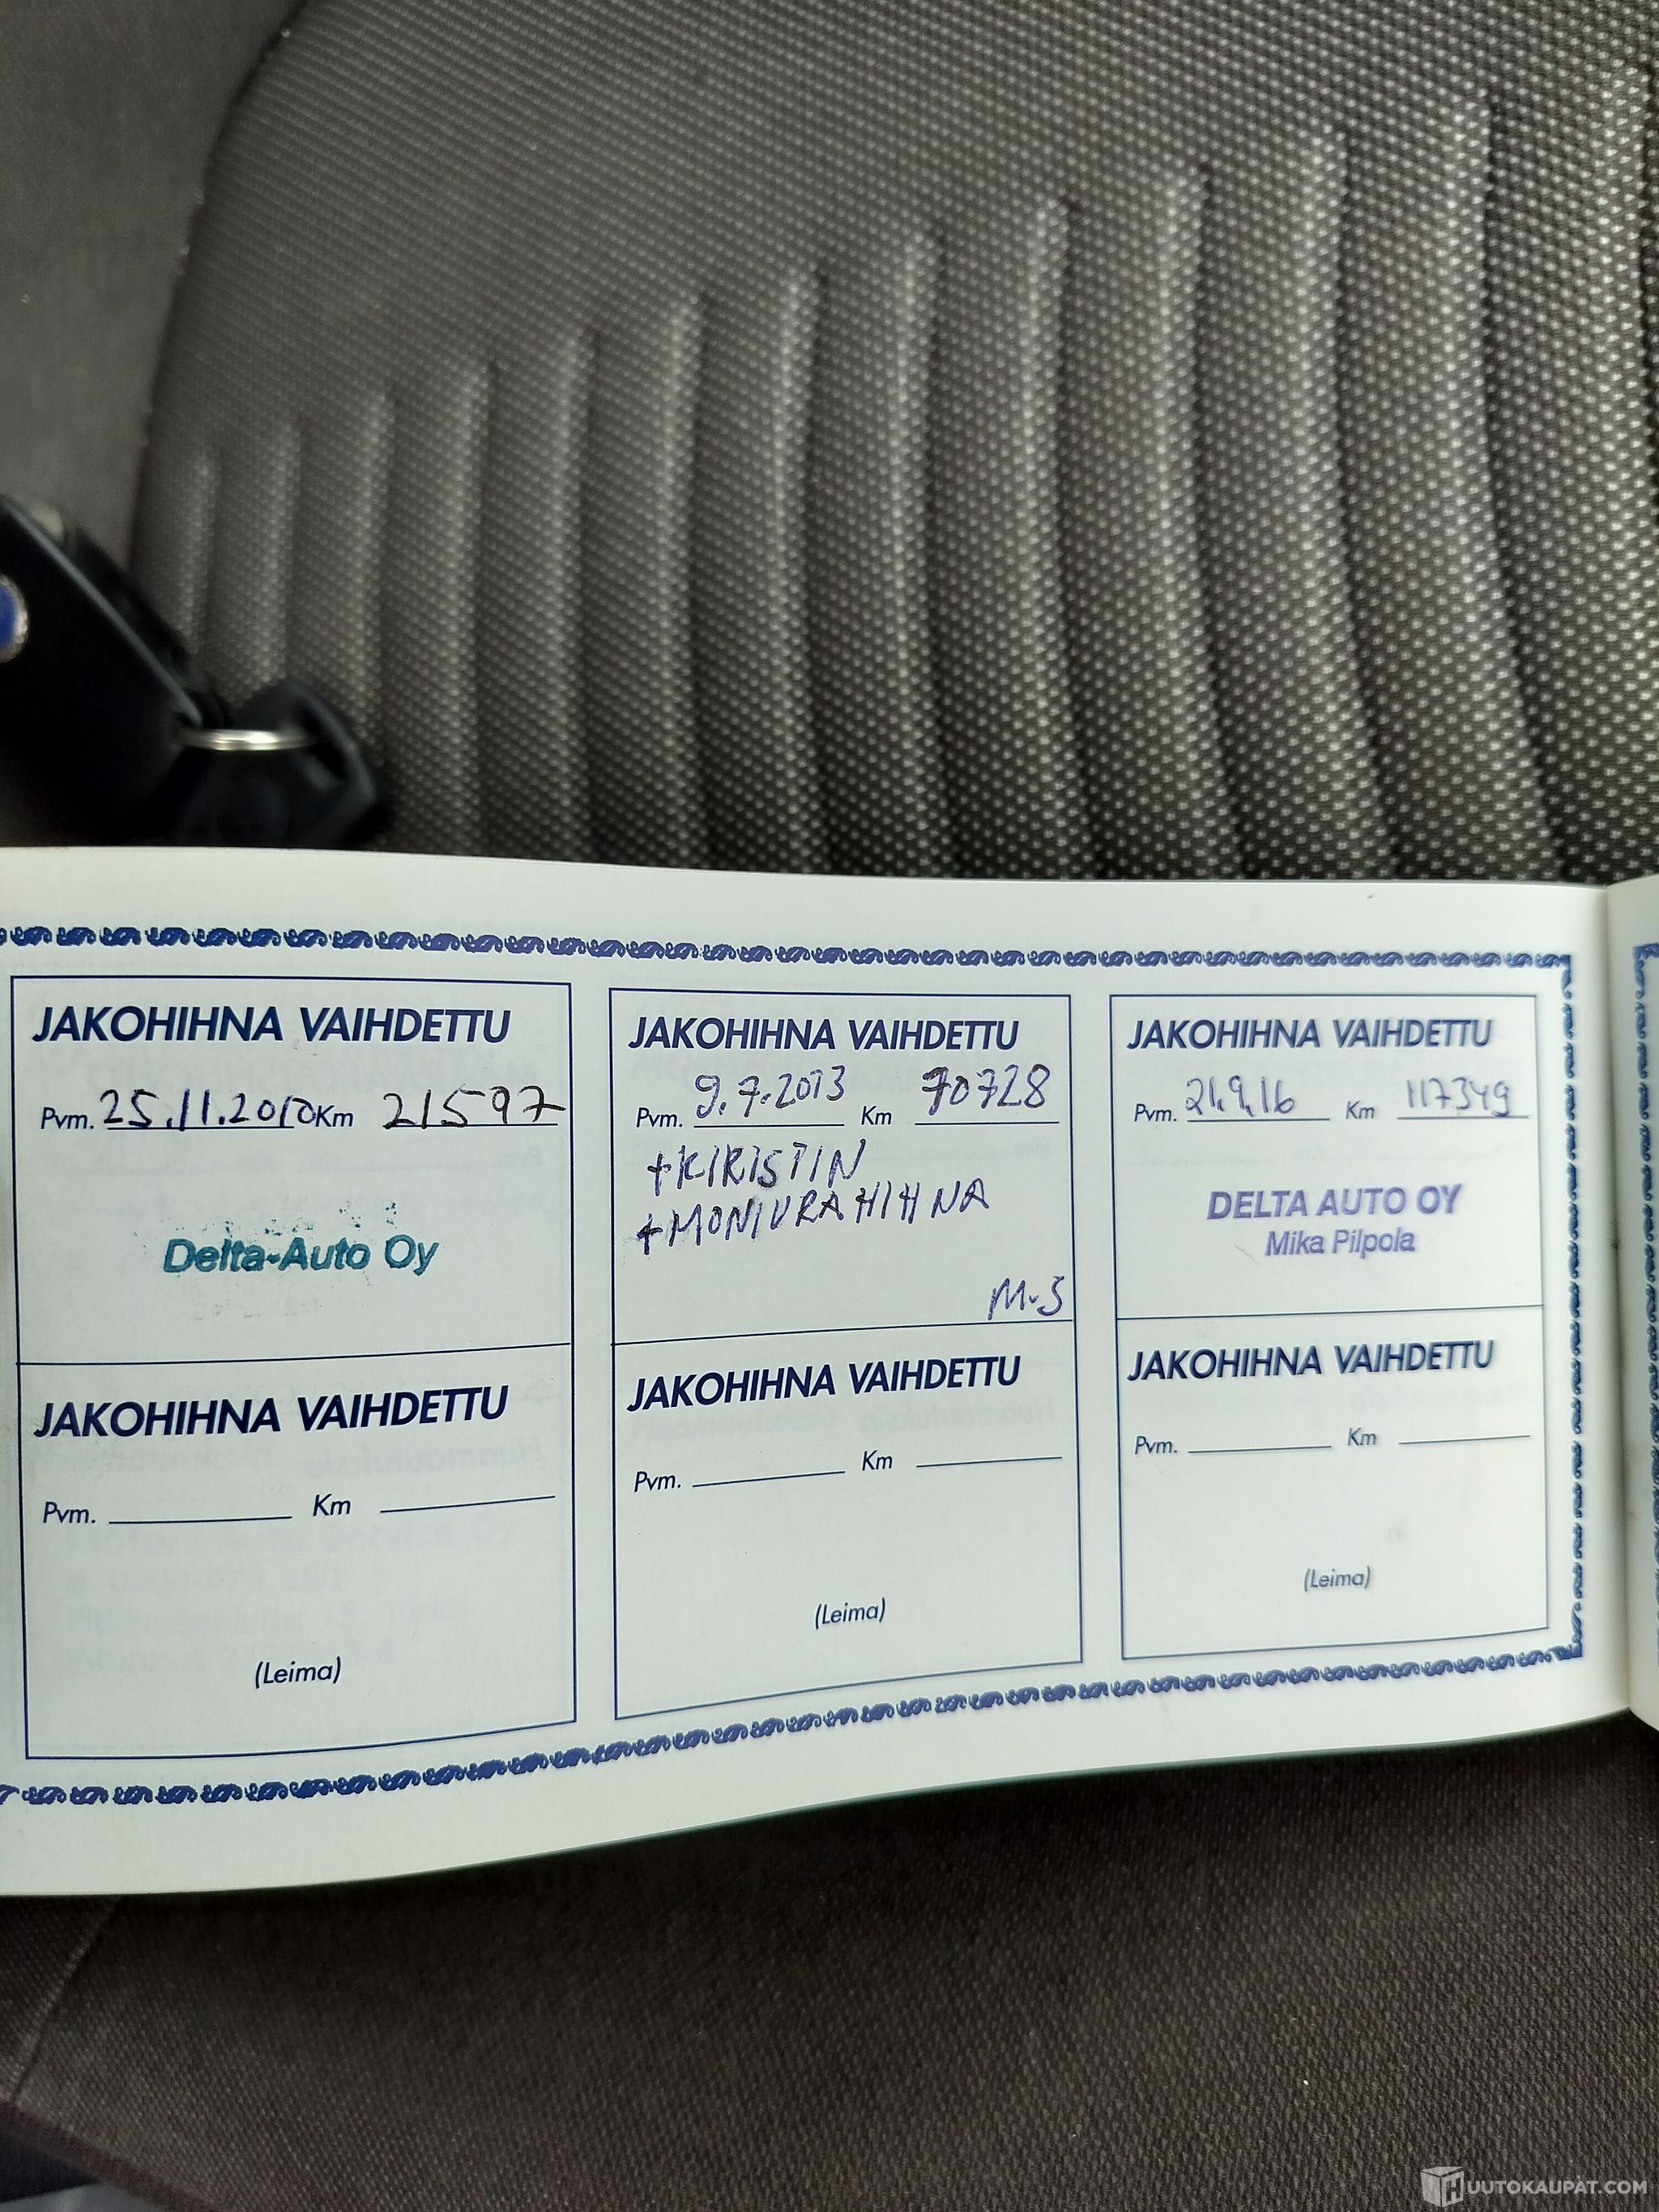 JAKOHIHNA VAIHDETTU
Pvm. 25.11.2010 Km 21597
Delta-Auto Oy
JAKOHIHNA VAIHDETTU
Pvm. Km
(Leima)
JAKOHIHNA VAIHDETTU
Pvm. 9.7.2013 Km 70728
+KIRISTIN
+MONIURAHIHNA
M-S
JAKOHIHNA VAIHDETTU
Pvm. Km
(Leima)
JAKOHIHNA VAIHDETTU
Pvm. 21.9.16 Km 117349
DELTA AUTO OY
Mika Pilpola
JAKOHIHNA VAIHDETTU
Pvm. Km
(Leima)
HUUTOKAUPAT.COM